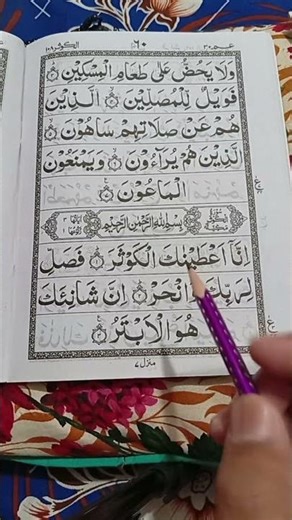 عـم ٣٠ ٦٠ الكوثر ١٠٨
وَلَا يَحُضُّ عَلٰى طَعَامِ الْمِسْكِيْنِ
فَوَيْلٌ لِّلْمُصَلِّيْنَ الَّذِيْنَ
هُمْ عَنْ صَلَاتِهِمْ سَاهُوْنَ
الَّذِيْنَ هُمْ يُرَآءُوْنَ وَيَمْنَعُوْنَ
الْمَاعُوْنَ
بِسْمِ اللّٰهِ الرَّحْمٰنِ الرَّحِيْمِ
اِنَّآ اَعْطَيْنٰكَ الْكَوْثَرَ فَصَلِّ
لِرَبِّكَ وَانْحَرْ اِنَّ شَانِئَكَ
هُوَ الْاَبْتَرُ
منزل ٧